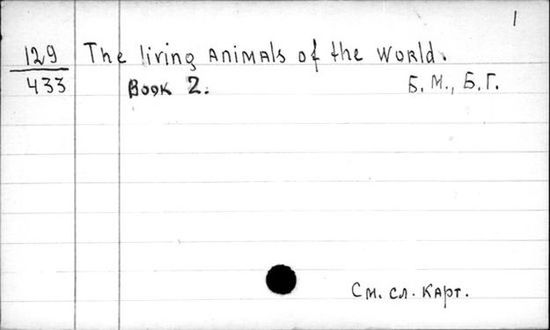 1
129 The living animals of the world.
433 Book 2. Б.М., Б.Г.
См. сл. карт.